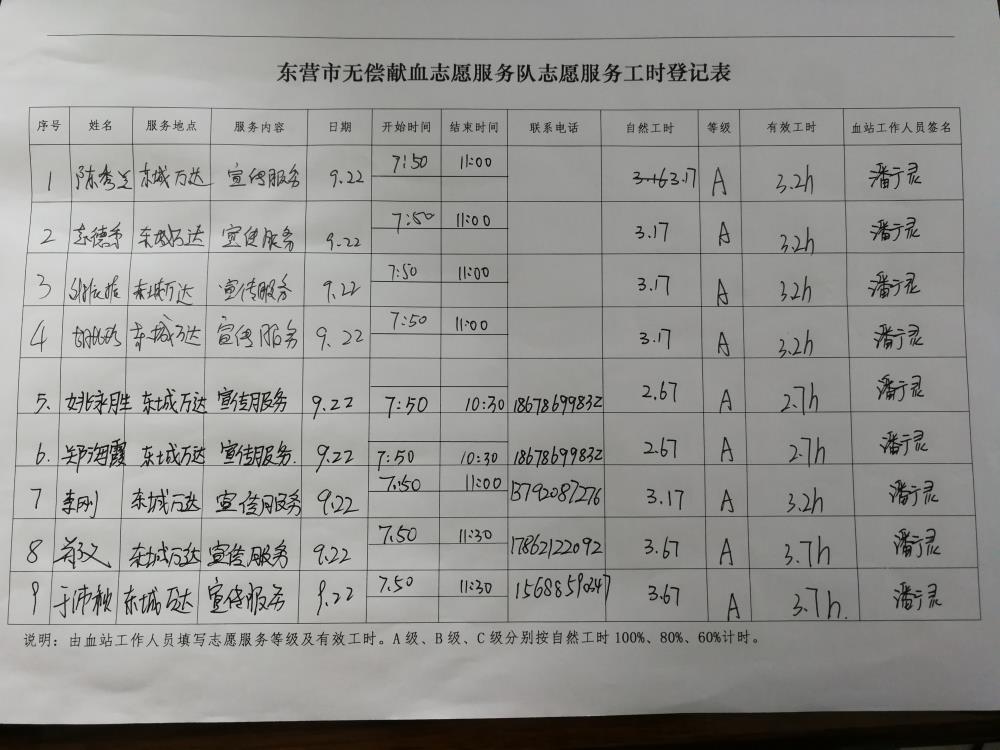 东营市无偿献血志愿服务队志愿服务工时登记表
序号 姓名 服务地点 服务内容 日期 开始时间 结束时间 联系电话 自然工时 等级 有效工时 血站工作人员签名
1 陈秀兰 东城万达 宣传服务 9.22 7:50 11:00 3.17 A 3.2h 潘宁灵
2 东城万达 宣传服务 9.22 7:50 11:00 3.17 A 3.2h 潘宁灵
3 东城万达 宣传服务 9.22 7:50 11:00 3.17 A 3.2h 潘宁灵
4 东城万达 宣传服务 9.22 7:50 11:00 3.17 A 3.2h 潘宁灵
5. 姚永胜 东城万达 宣传服务 9.22 7:50 10:30 18678699832 2.67 A 2.7h 潘宁灵
6. 郑海霞 东城万达 宣传服务. 9.22 7:50 10:30 18678699832 2.67 A 2.7h 潘宁灵
7 李刚 东城万达 宣传服务 9.22 7:50 11:00 13792087276 3.17 A 3.2h 潘宁灵
8 东城万达 宣传服务 9.22 7.50 11:30 17862122092 3.67 A 3.7h 潘宁灵
9 于沛秋 东城万达 宣传服务 9.22 7.50 11:30 15688590347 3.67 A 3.7h. 潘宁灵
说明：由血站工作人员填写志愿服务等级及有效工时。A级、B级、C级分别按自然工时100%、80%、60%计时。